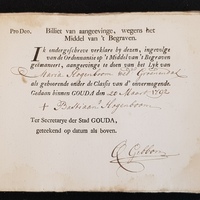 Pro Deo. Billet van aangeevinge, wegens het
Middel van 't Begraven.
Ik ondergeschreve verklare by dezen, ingevolge
van de Ordonnantie op 't Middel van 't Begraven
geëmaneert, aangevinge te doen van het Lyk van
Maria Hogenboom wed Groenendal
als gehoorende onder de Classis van d' onvermogende.
Gedaan binnen GOUDA den 20 Maart 1792
+ Bastiaan Hogenboom
Ter Secretarye der Stad GOUDA,
geteekend op datum als boven.